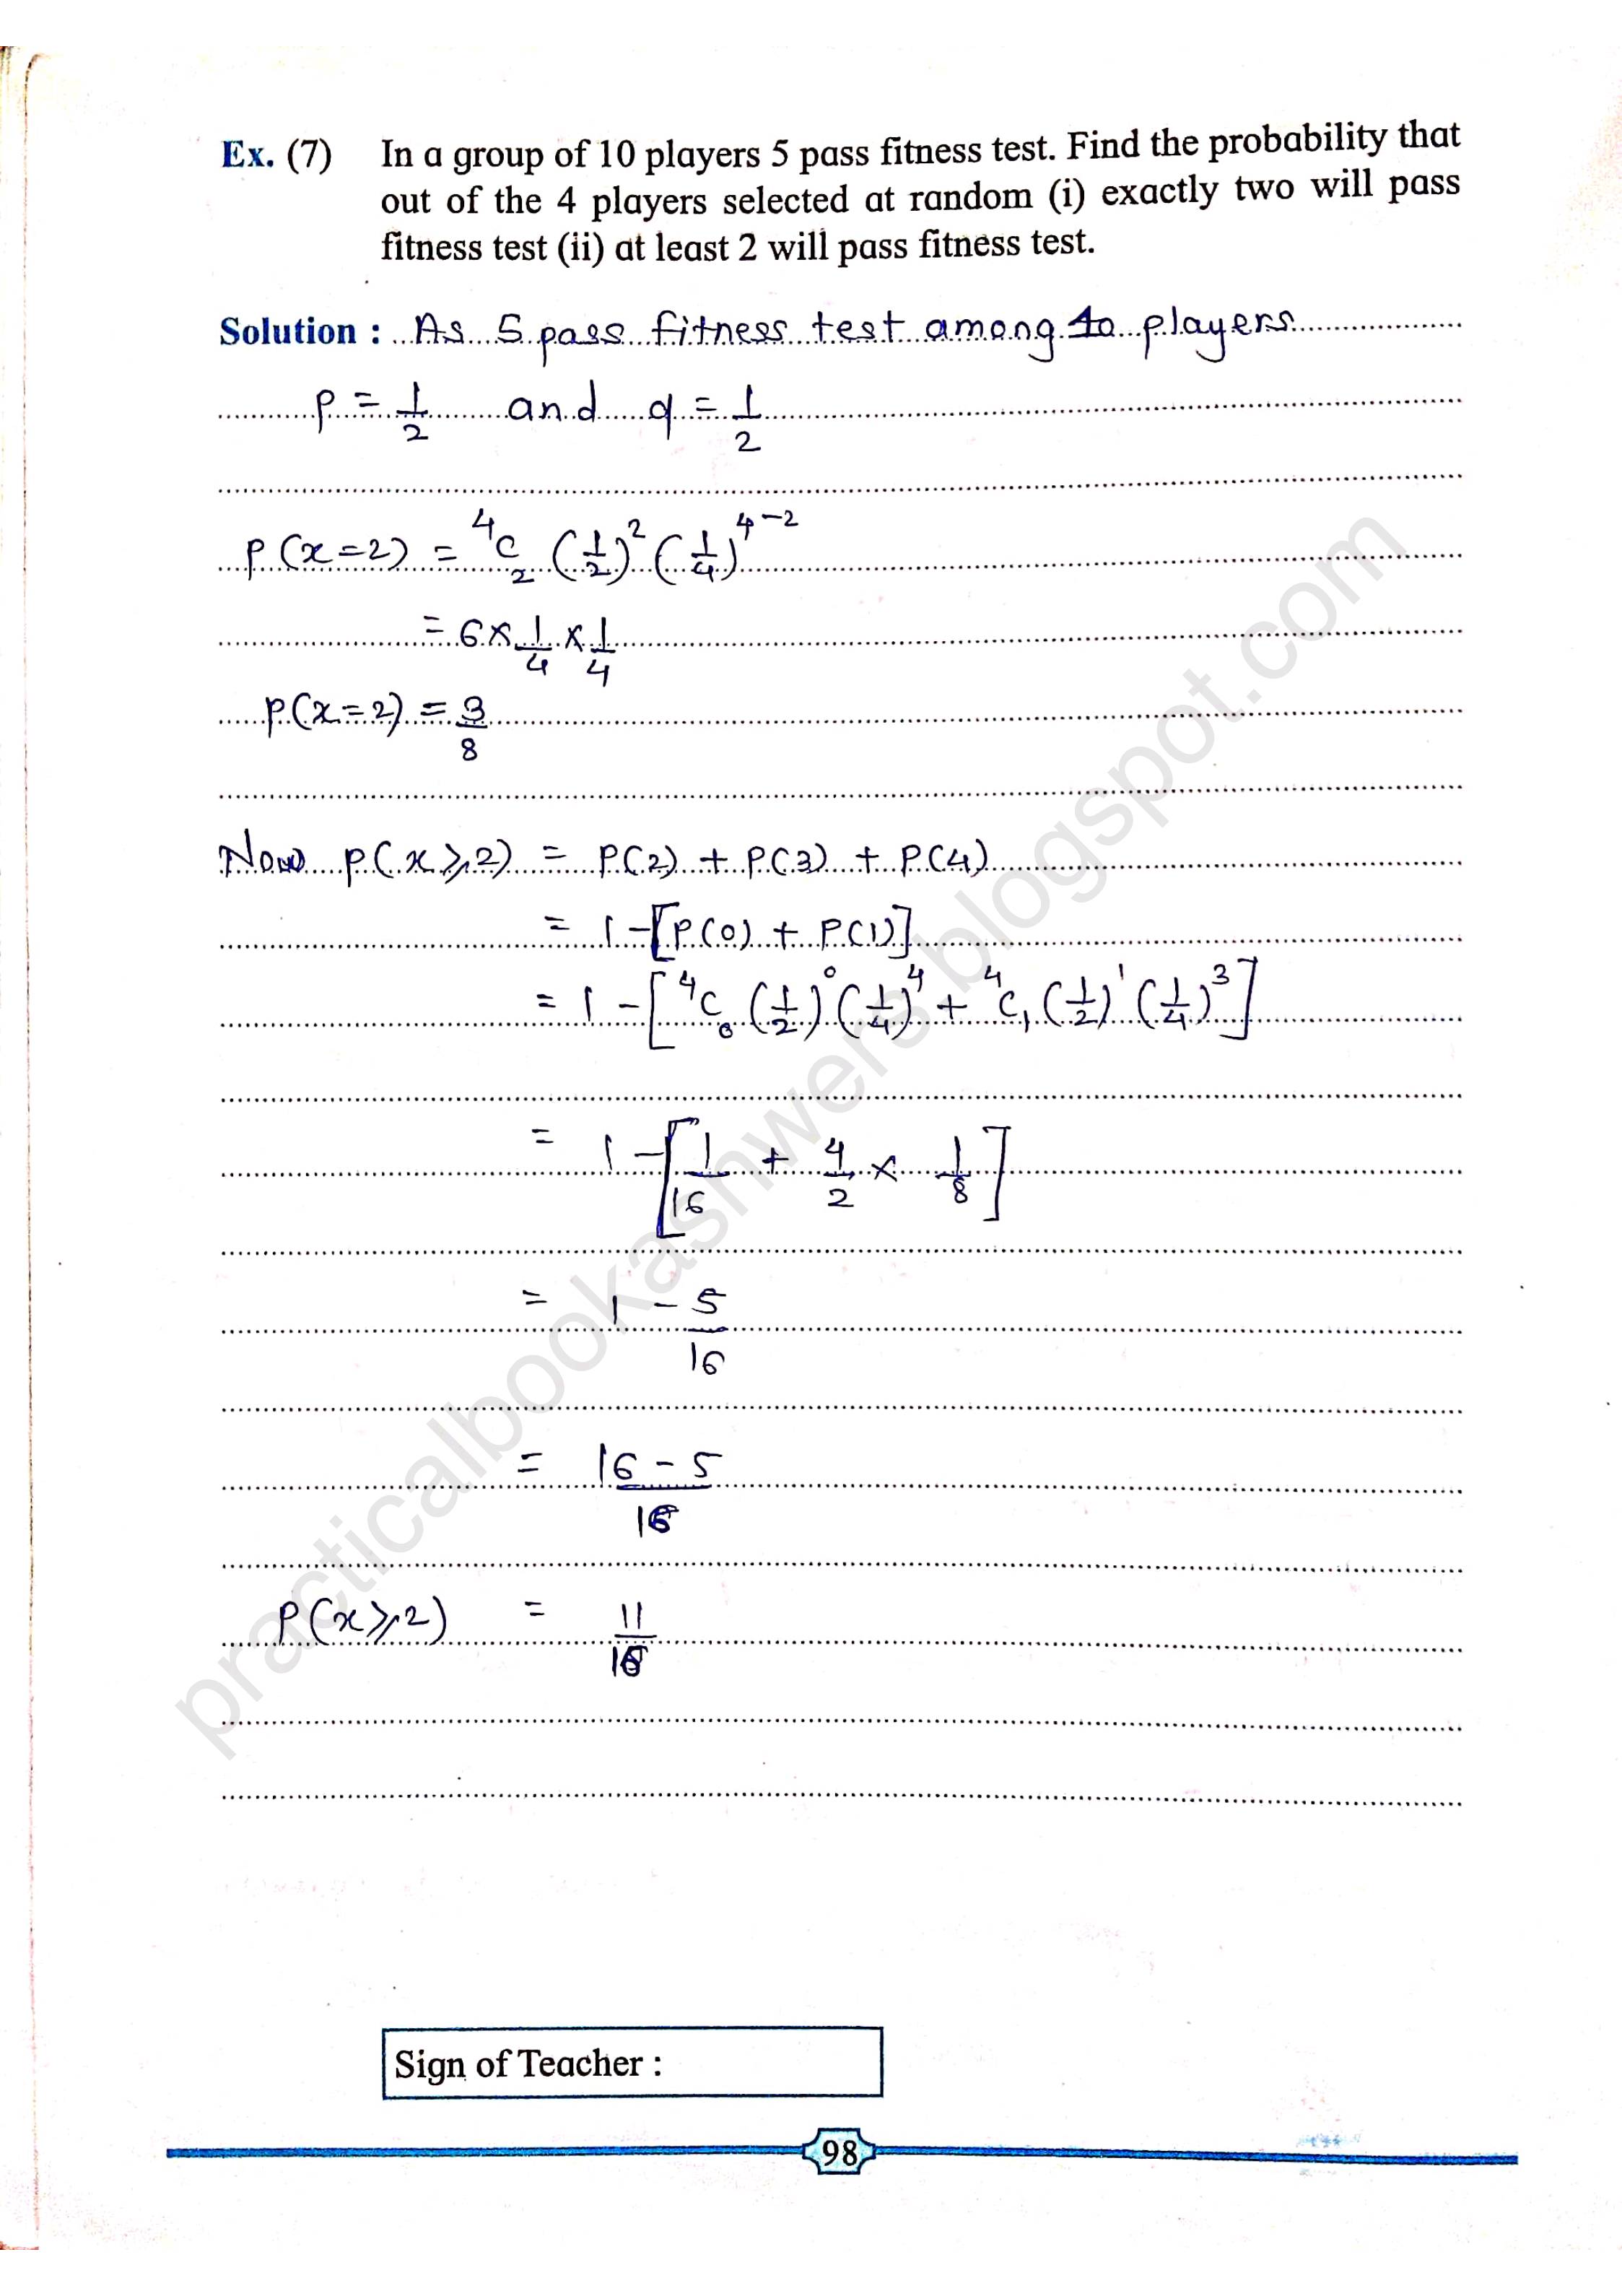 Ex. (7) In a group of 10 players 5 pass fitness test. Find the probability that
out of the 4 players selected at random (i) exactly two will pass
fitness test (ii) at least 2 will pass fitness test.
Solution : As 5 pass fitness test among 10 players
p = 1/2 and q = 1/2
P(x=2) = ⁴C₂ (1/2)² (1/4)⁴⁻²
= 6 × 1/4 × 1/4
P(x=2) = 3/8
Now P(x ⩾ 2) = P(2) + P(3) + P(4)
= 1 - [P(0) + P(1)]
= 1 - [⁴C₀ (1/2)⁰ (1/4)⁴ + ⁴C₁ (1/2)¹ (1/4)³]
= 1 - [1/16 + 4/2 × 1/8]
= 1 - 5/16
= 16 - 5/16
P(x ⩾ 2) = 11/16
practicalbookashwers.blogspot.com
Sign of Teacher :
98